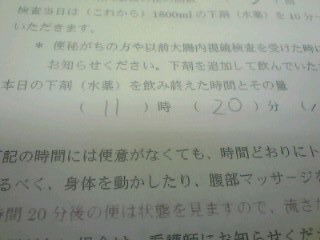 検査当日は(これから)1800mlの下剤(水薬)を10分
いただきます。
* 便秘がちの方や以前大腸内視鏡検査を受けた時に
お知らせください。下剤を追加して飲んでいた
本日の下剤(水薬)を飲み終えた時間とその量
(11)時 (20)分 (
記の時間には便意がなくても、時間どおりにト
るべく、身体を動かしたり、腹部マッサージを
時間20分後の便は状態を見ますので、流さ
看護師にお知らせくださ